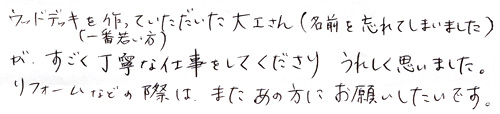 ウッドデッキを作っていただいた大工さん(名前を忘れてしまいました)
(一番若い方)
が、すごく丁寧な仕事をしてくださり うれしく思いました。
リフォームなどの際は、またあの方にお願いしたいです。